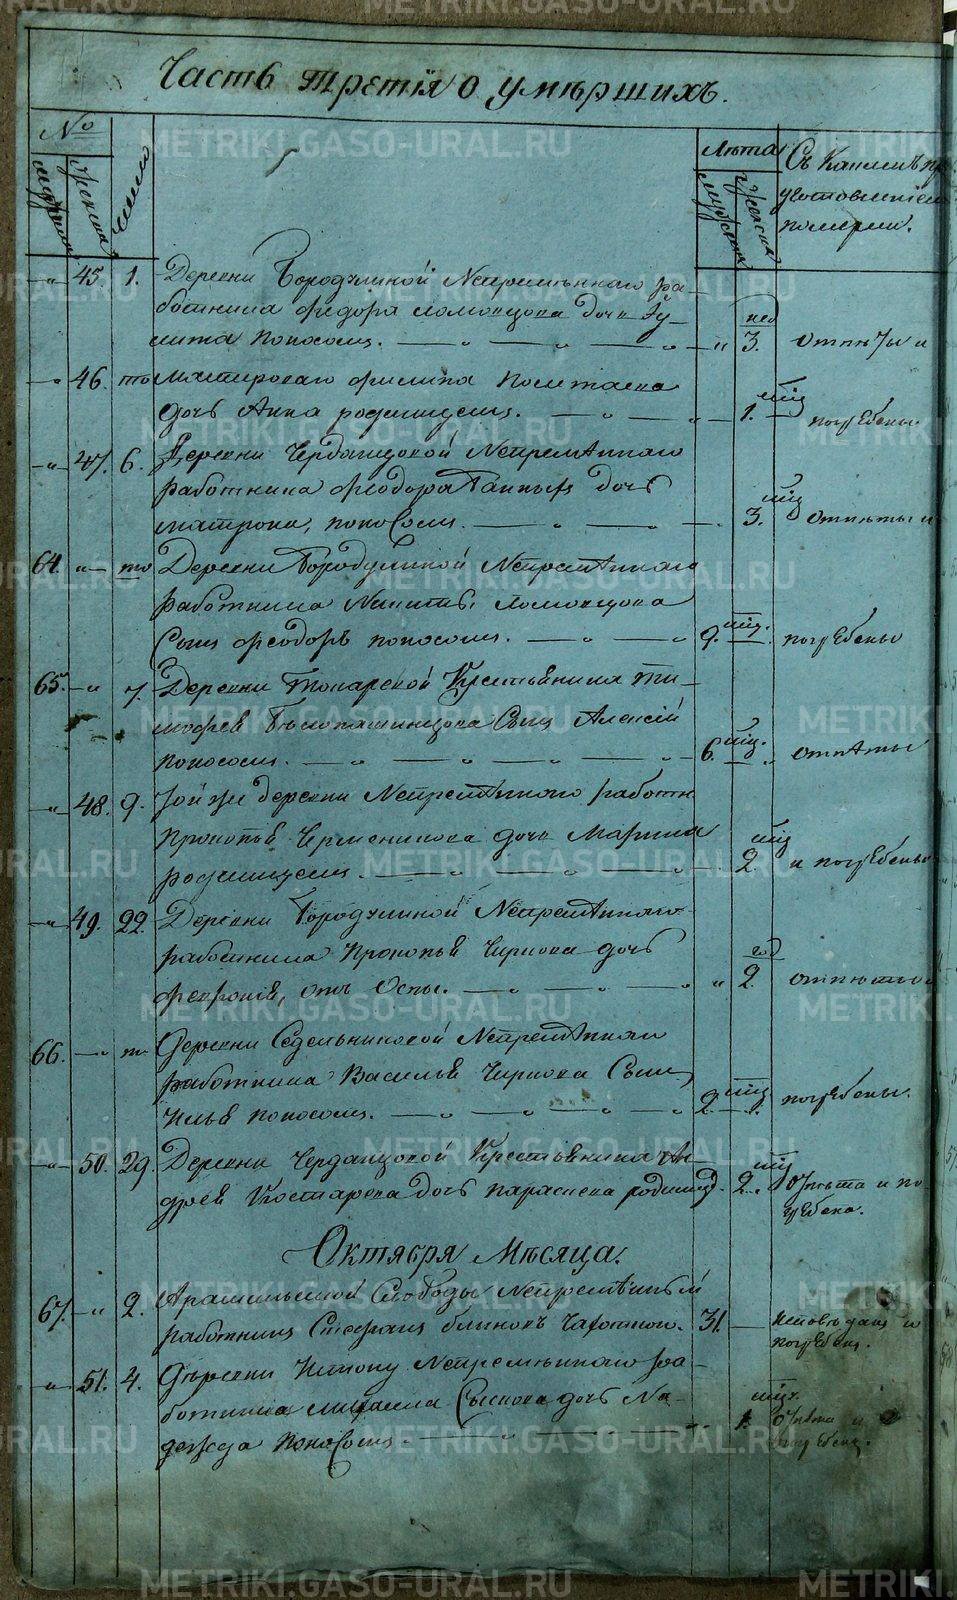 Часть третія о умѣршихъ.
№
мужеска
женска
Число
Лѣта
мужеска
женска
Съ Какимъ пр
уготовленіем
померли.
" 45. 1. Деревни Бородулиной Непремѣннаго ра-
ботника Федора Ломовцова дочь
поносомъ. " 3. нед отпѣты и
" 46. то Мастероваго Филипа
дочь Анна родимцемъ. " 1. мц погребены
" 47. 6. Деревни Черданцовой Непремѣннаго
работника Феодора дочь
Матрона, поносомъ. 3. мц отпѣты и
64. " то Деревни Бородулиной Непремѣннаго
работника Никиты Ломовцова
Сынъ Феодоръ поносомъ. 9. мц. погребены
65. " 7. Деревни Токаревой Крестьянина Ти-
мофея Бѣлоташинцова Сынъ Алексій
поносомъ. 6. мц. отпѣты
" 48. 9. Той же деревни Непремѣннаго работн
Прокопья Черменинова дочь Марина
родимцемъ 2. мц и погребены
" 49. 22. Деревни Бородулиной Непремѣннаго
работника Прокопья Чиркова дочь
Февронія, отъ Оспы. " 2. год отпѣты и
66. " то Деревни Седельниковой Непремѣннаго
работника Василья Чиркова Сынъ
Илья поносомъ. 2. мц погребены.
" 50. 29. Деревни Черданцовой Крестьянина Ан-
дрея Костарева дочь Парасковa родимц. 2. мц Отпѣта и по-
гребена.
Октября Мѣсяца.
67. " 2. Арамильской Слободы Непремѣнный
работникъ Стефанъ Блиновъ Чахоткой. 31. Исповѣданъ и
погребенъ.
" 51. 4. Деревни Непремѣннаго ра-
ботника Михаила Сыскова дочь На-
дежда поносомъ 1. мц. Отпѣта и
погребена.
METRIKI.GASO-URAL.RU